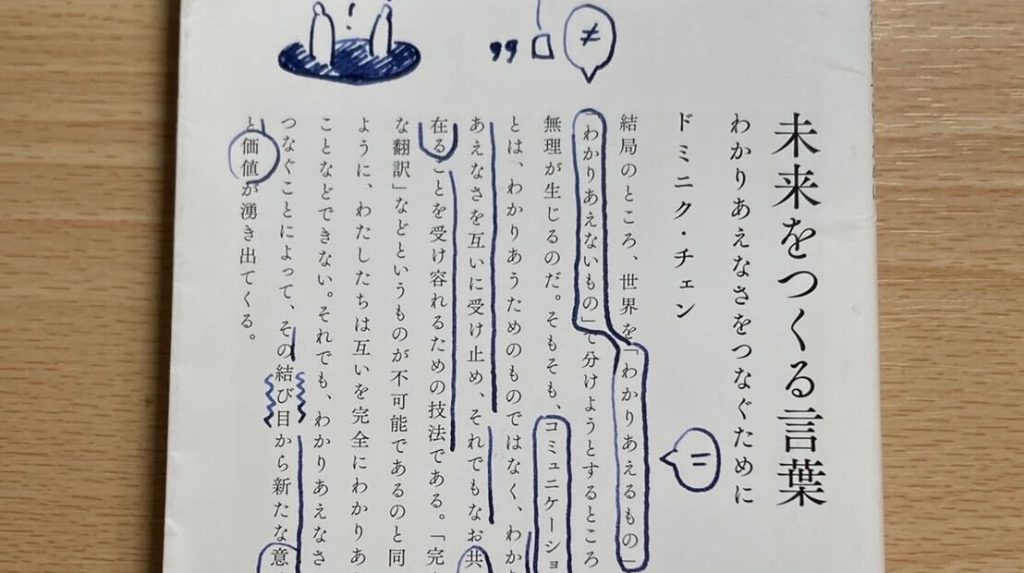 未来をつくる言葉
わかりあえなさをつなぐために
ドミニク・チェン
結局のところ、世界を「わかりあえるもの」
「わかりあえないもの」で分けようとするところ
無理が生じるのだ。そもそも、コミュニケーショ
とは、わかりあうためのものではなく、わか
あえなさを互いに受け止め、それでもなお共
在ることを受け容れるための技法である。「完
な翻訳」などというものが不可能であるのと同
ように、わたしたちは互いを完全にわかりあ
ことなどできない。それでも、わかりあえなさ
つなぐことによって、その結び目から新たな意
と価値が湧き出てくる。
=
≠
!